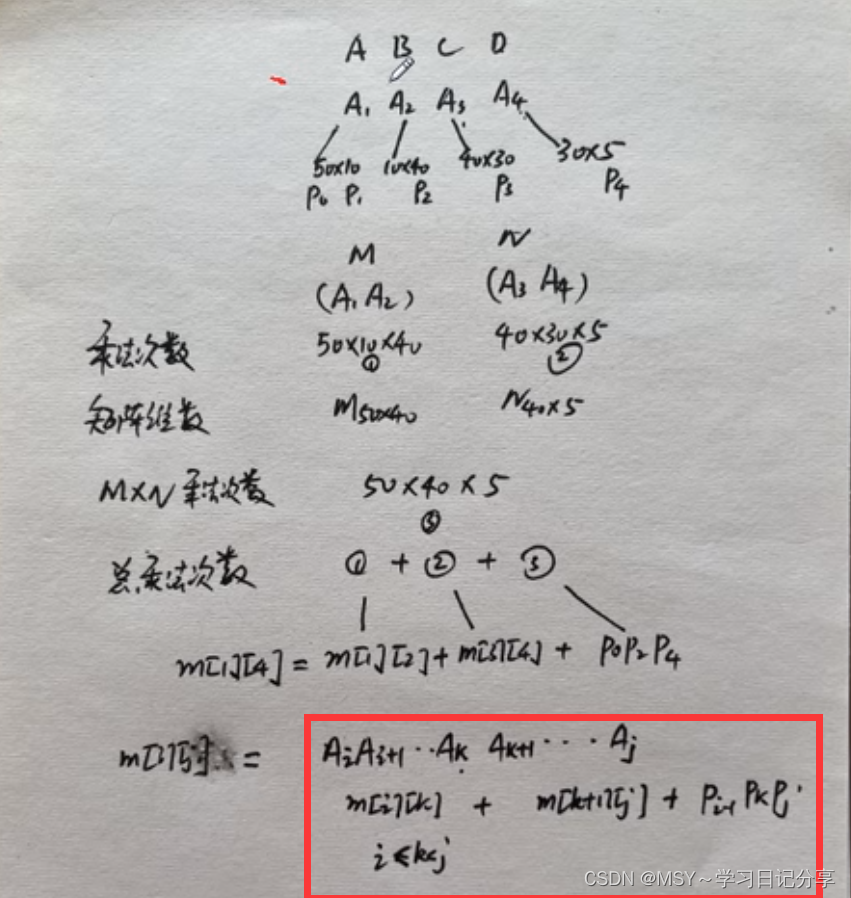 A B C D
A₁ A₂ A₃ A₄
50×10 10×40 40×30 30×5
P₀ P₁ P₂ P₃ P₄
M N
(A₁ A₂) (A₃ A₄)
乘法次数 50×10×40 40×30×5
① ②
矩阵维数 M50×40 N40×5
M×N 乘法次数 50×40×5
③
总乘法次数 ① + ② + ③
m[1][4] = m[1][2] + m[3][4] + P₀P₂P₄
m[i][j] = AᵢAᵢ₊₁ ‥Aₖ Aₖ₊₁ ···· Aⱼ
m[i][k] + m[k+1][j] + Pᵢ₋₁ PₖPⱼ
i≤k<j
CSDN @MSY～学习日记分享